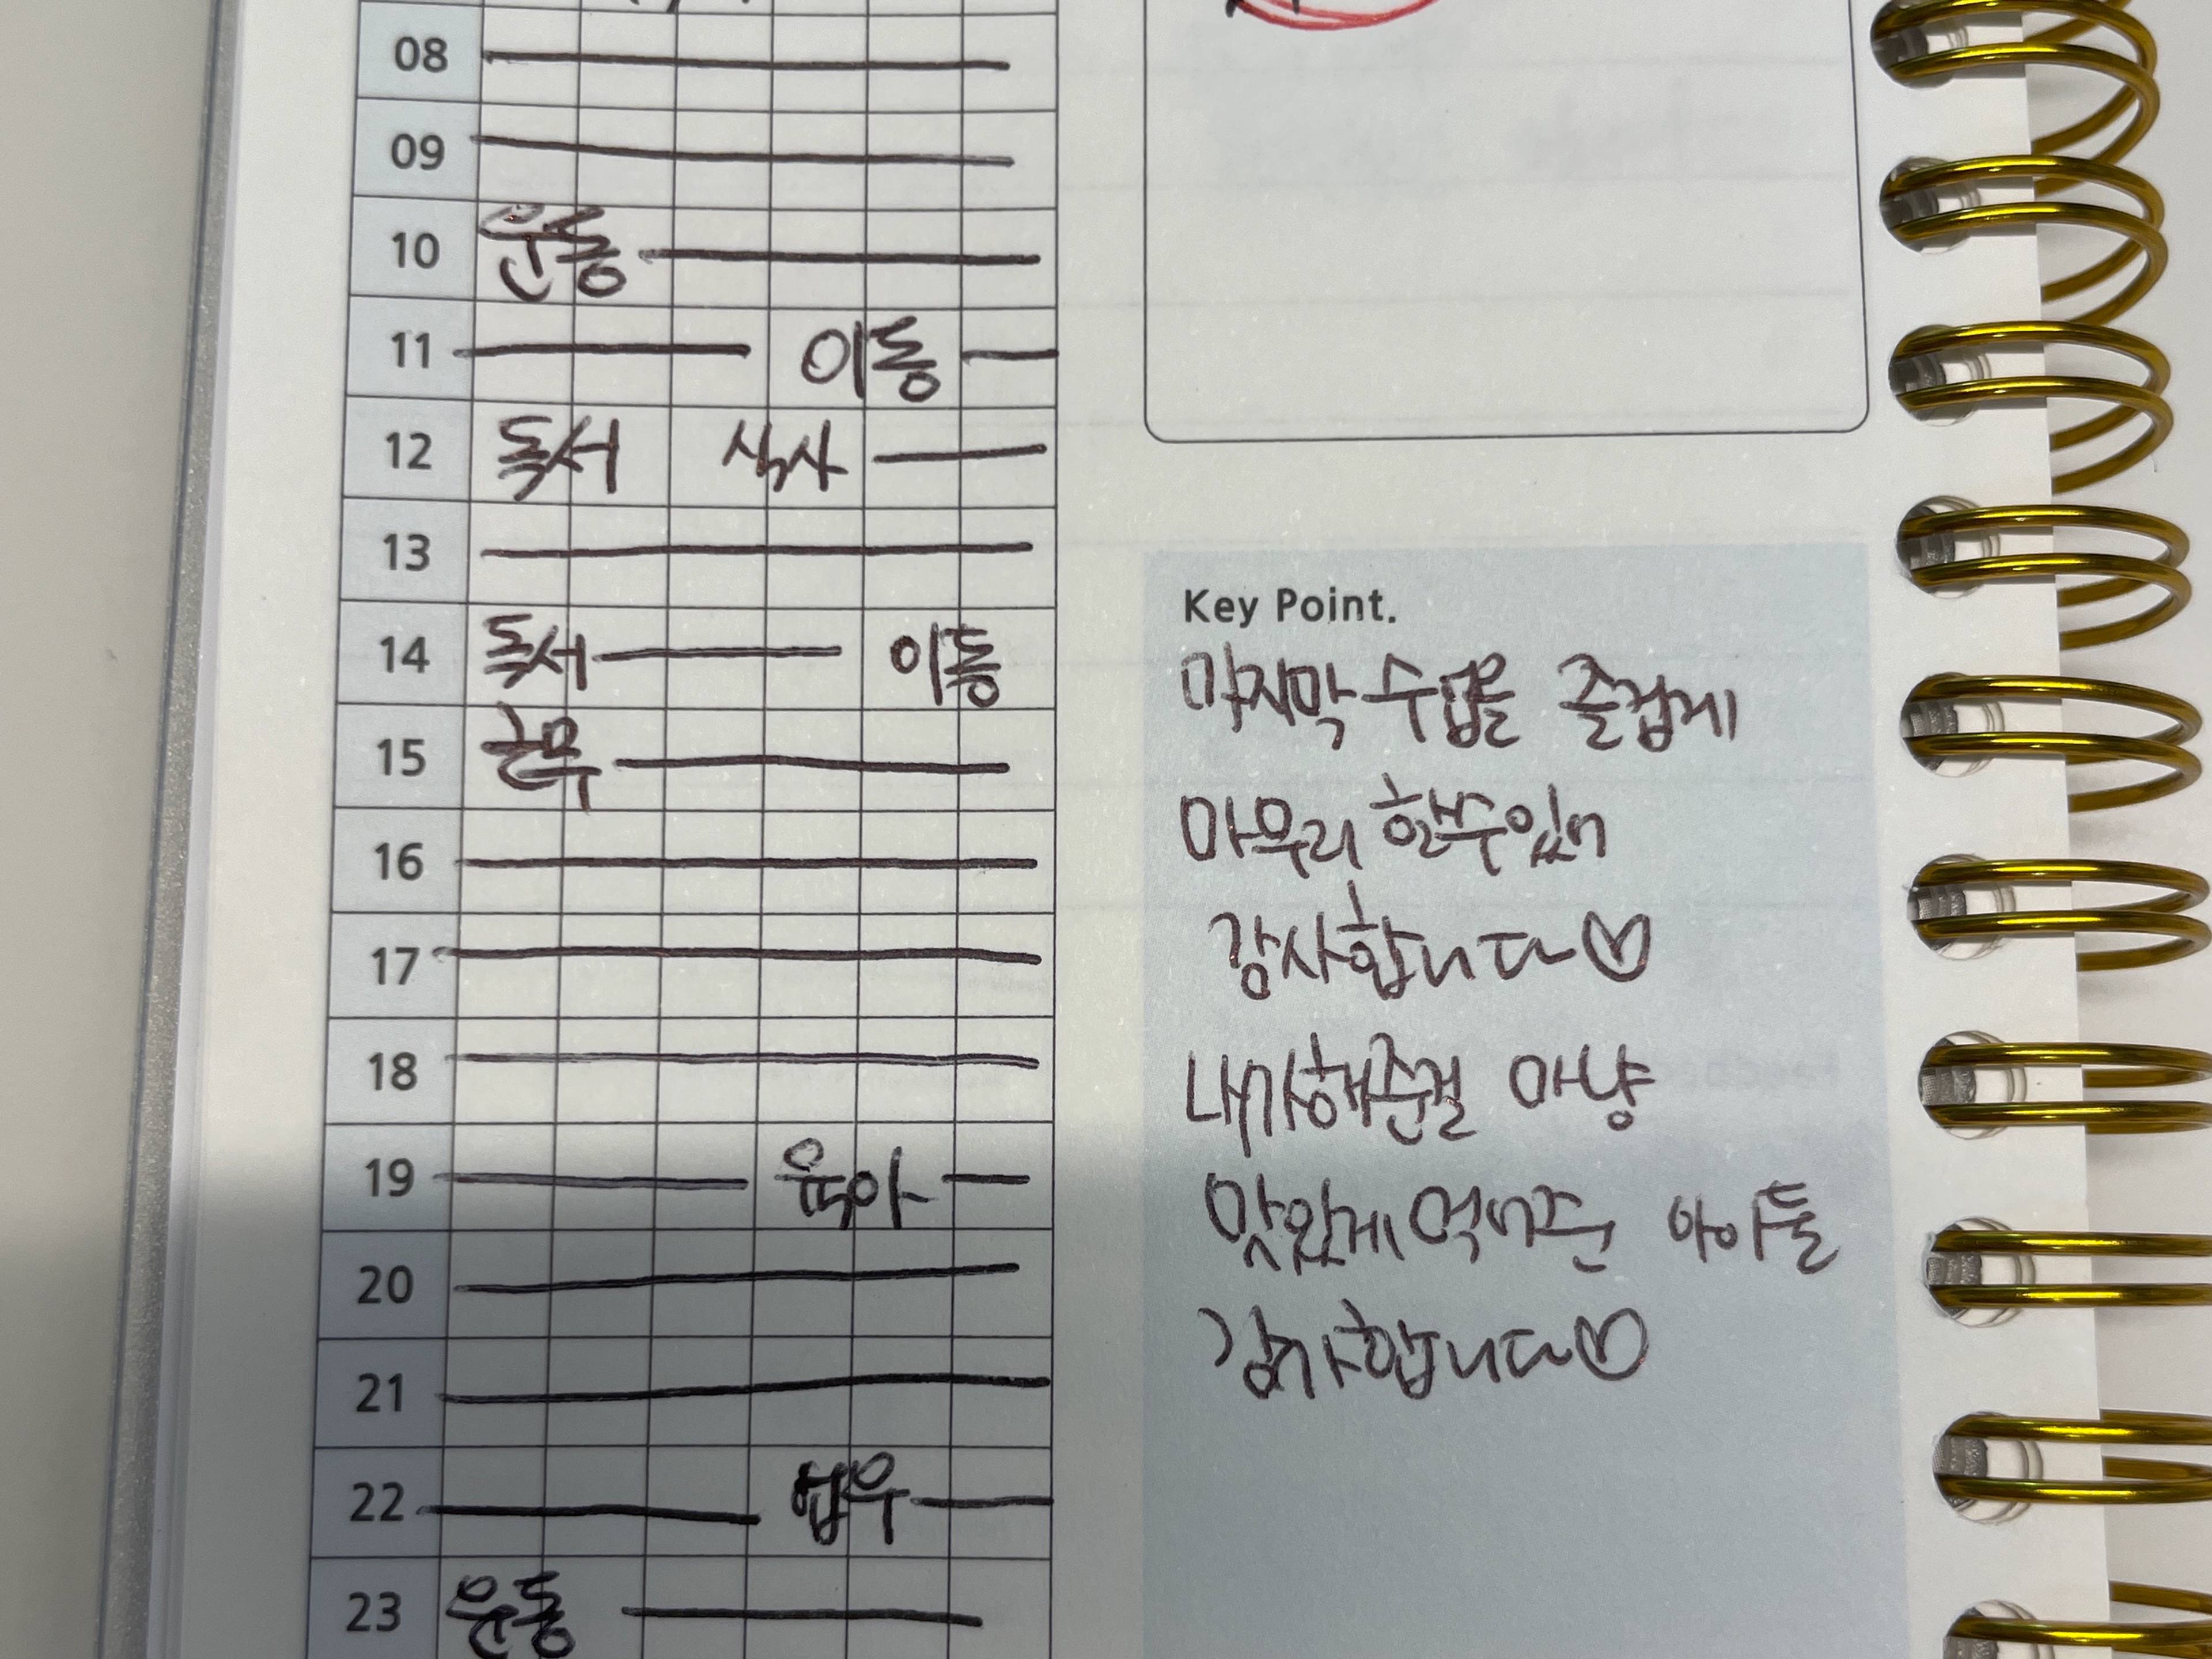 08
09
10 운동
11 이동
12 독서 식사
13
14 독서 이동
15 근무
16
17
18
19 육아
20
21
22 업무
23 운동
Key Point.
마지막 수업을 즐겁게
마무리 할수있어
감사합니다♡
내가해준걸 마냥
맛있게 먹어준 아이들
감사합니다♡